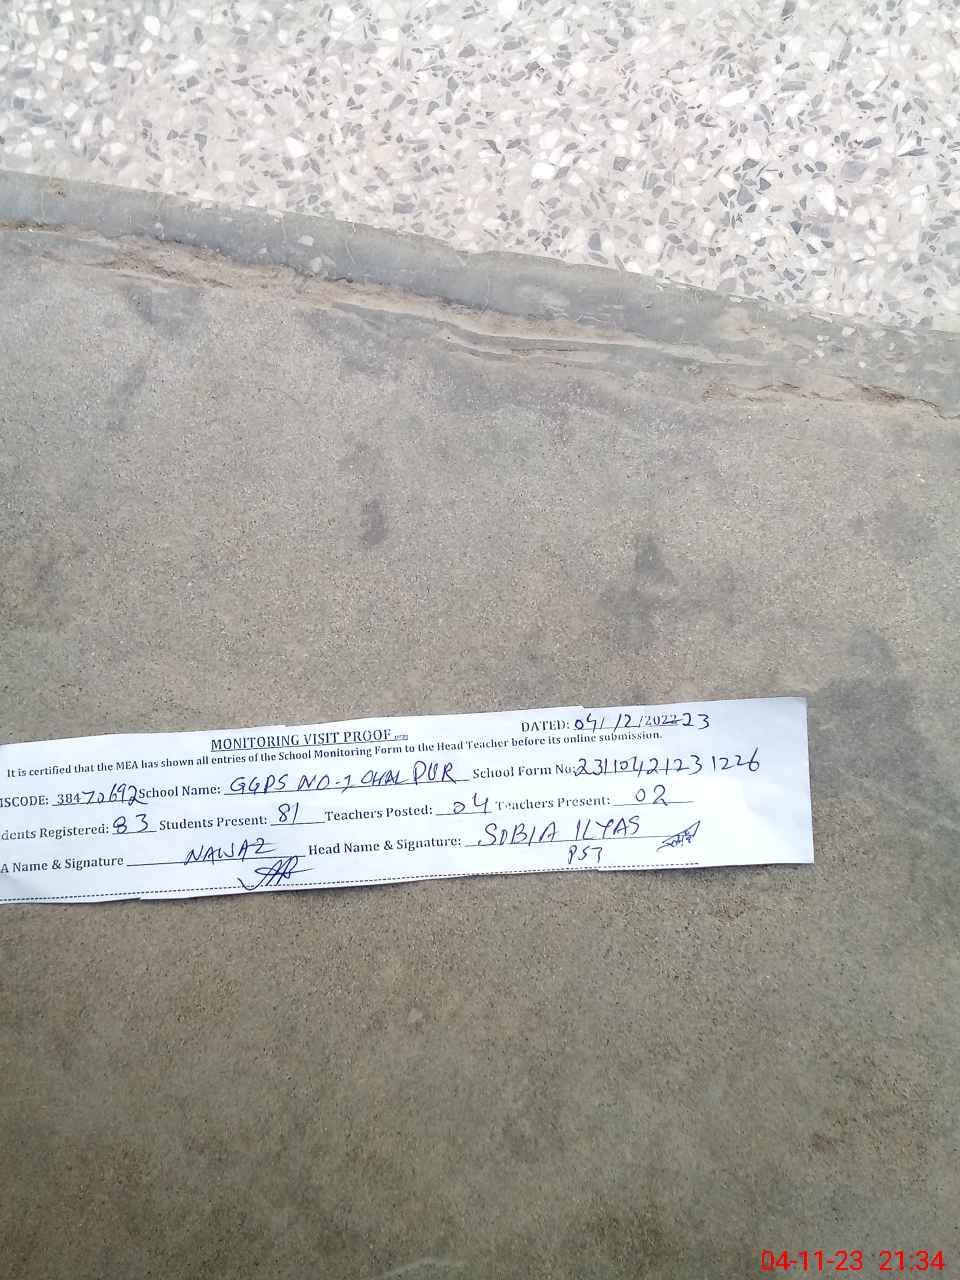 MONITORING VISIT PROOF
DATED: 04/12/2022 23
It is certified that the MEA has shown all entries of the School Monitoring Form to the Head Teacher before its online submission.
ISCODE: 38470692 School Name: GGPS NO-1 School Form No: 23110421231226
dents Registered: 83 Students Present: 81 Teachers Posted: 04 Teachers Present: 02
A Name & Signature NAWAZ Head Name & Signature: SOBIA ILYAS
PST
04-11-23 21:34